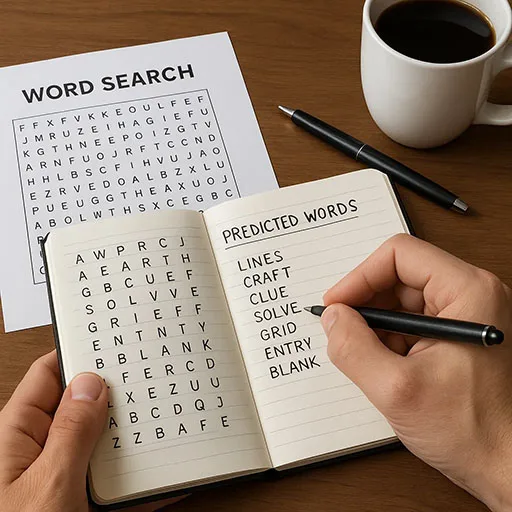 WORD SEARCH
F F X F V K K E O U L F E F
J M R U Z E I H A G I E F U
K G T H N E E P O I Z G T V
A R N F U O J R F T C C N D
H H L B S C F I H V U J A O
E Z R V E D O A L B Z X L U
P U E U G G T H E A X U O J
A B O L W T H S X C E G B C
A W P R C J
A E A R T H
G B C U E F
S O L V V E
G R I E F F
E N T N T Y
B B L A N K
F E R C D
X E Z U U
A B C D Q J
Z Z B A F E
PREDICTED WORDS
LINES
CRAFT
CLUE
SOLVE
GRID
ENTRY
BLANK